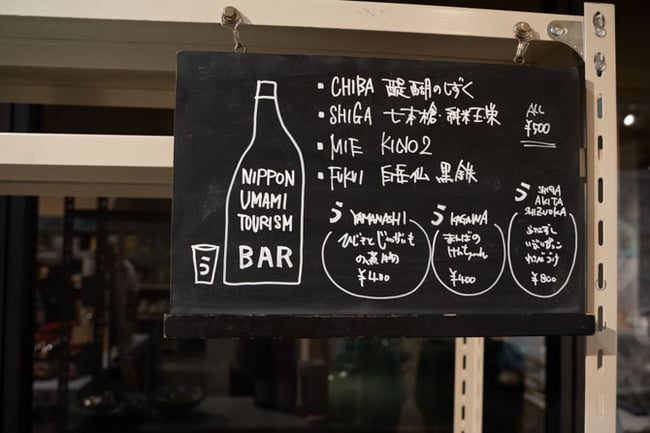 • CHIBA 醍醐のしずく
• SHIGA 七本槍・純米玉栄
• MIE KINO2
• FUKUI 白岳仙 黒鉄
ALL
¥500
NIPPON
UMAMI
TOURISM
BAR
う
う YAMANASHI
ひじきとじゃがいも
の煮物
¥400
う KAGAWA
まんばの
けんちゃん
¥400
う SHIGA
AKITA
SHIZUOKA
ふなずし
いぶりガッコ
わさびづけ
¥800